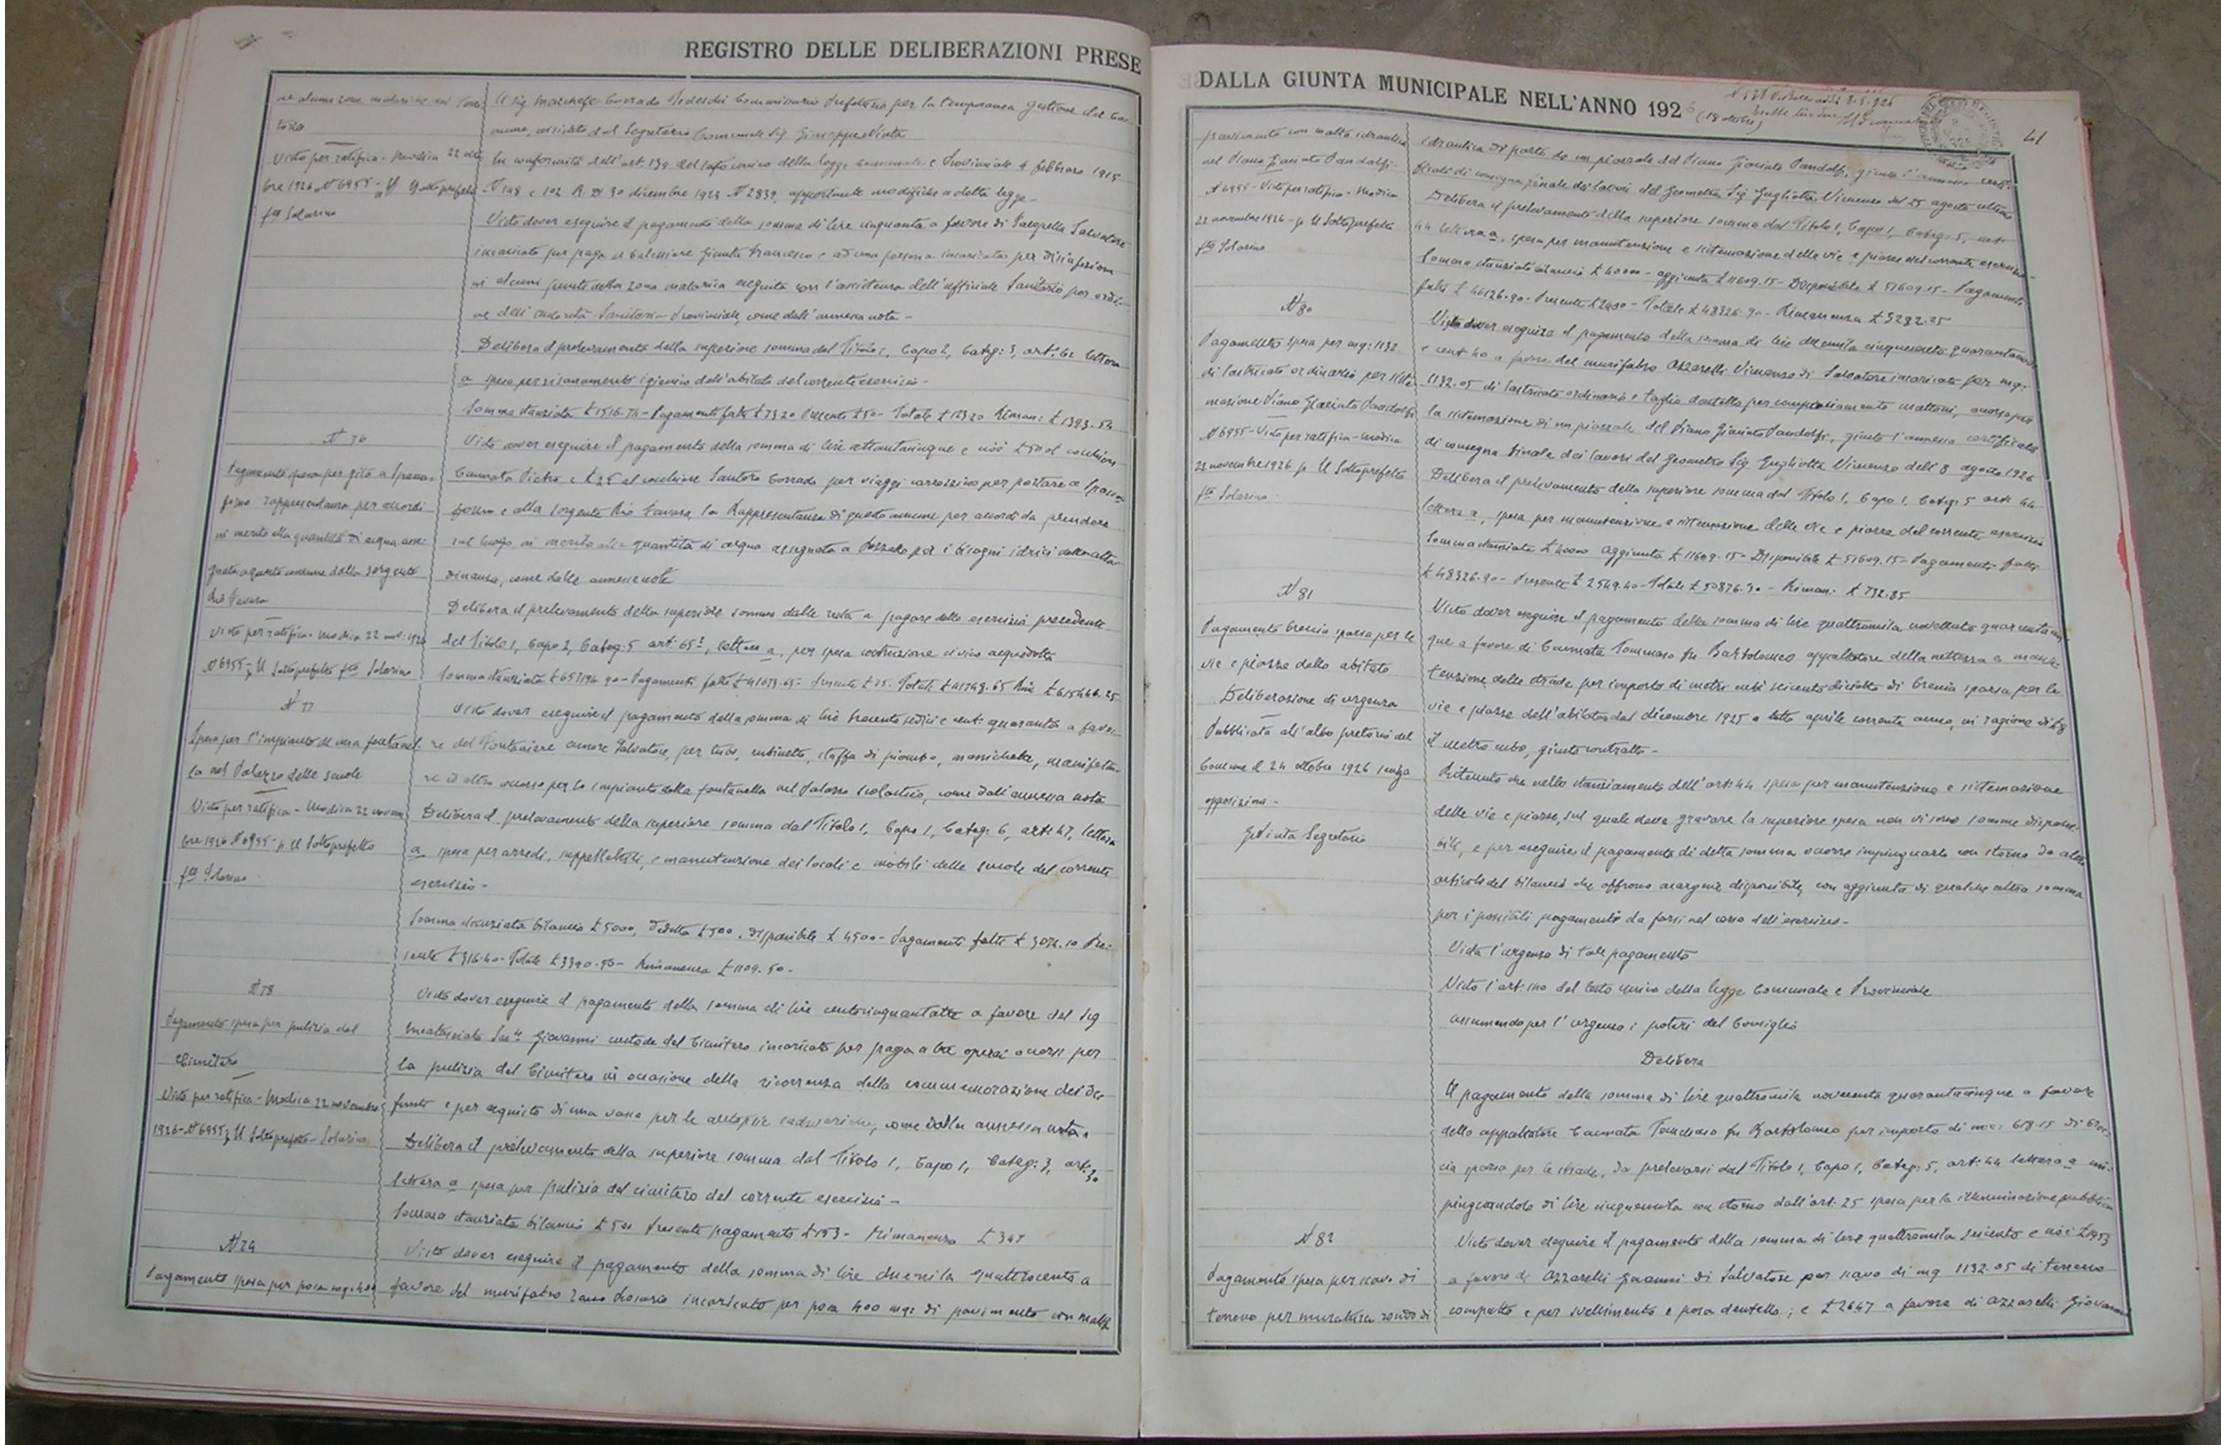 REGISTRO DELLE DELIBERAZIONI PRESE
Il Sig. Marchese Corrado Tedeschi Commissario Prefettizio per la temporanea gestione del Co-
mune, assistito dal Segretario Comunale Sig. Giuseppe
In conformità dell'art. 139 del testo unico della legge Comunale e Provinciale 4 febbraio 1915
N 148 e 102 R. D. 30 dicembre 1923 N 2839, apportante modifiche a detta legge -
Visto dover eseguire il pagamento della somma di lire cinquanta a favore di Salvatore
incaricato per paga al Giunta Francesco e ad una persona incaricata per disinfezione
in alcuni punti della zona malarica eseguita con l'assistenza dell'ufficiale Sanitario per ordi-
ne dell'autorità Sanitaria Provinciale, come dall'annessa nota -
Delibera il prelevamento della superiore somma dal Titolo 1, Capo 2, Categ: 3, art. 62 lettera
a spesa per risanamento igienico dell'abitato del corrente esercizio -
Somma stanziata £ 1516.74 - Pagamenti fatti £ 73.20 Presente £ 50 - Totale £ 123.20 Riman: £ 1393.54
Visto per ratifica - Modica 22 novem
bre 1926 N 6955 - Il Sottoprefetto
fto Solarino
Visto dover eseguire il pagamento della somma di lire settantacinque e cioè £ 50 al cocchiere
Cannata Pietro e £ 25 al cocchiere Santoro Corrado per viaggi carrozzino per portare a Spacca-
forno e alla sorgente Rio Favara la Rappresentanza di questo comune per accordi da prendere
sul luogo in merito alla quantità di acqua assegnata a Pozzallo per i bisogni idrici della citta-
dinanza, come dalle annesse note
Delibera il prelevamento della superiore somma dalle resta a pagare dello esercizio precedente
del Titolo 1, Capo 2, Categ. 5 art. 65², lettera a, per spesa costruzione civico acquedotto
Somma stanziata £ 657194.90 - Pagamenti fatti £ 41673.65 - Presente £ 75. Totale £ 41748.65 Rim £ 615446.25
Pagamento spesa per gita a Spacca-
forno rappresentanza per accordi
in merito alla quantità di acqua asse-
gnata a questo comune dalla sorgente
Rio Favara
Visto per ratifica - Modica 22 nov: 1926
N 6955 - Il Sottoprefetto fto Solarino
N 77
Spesa per l'impianto di una fontanel-
la nel Palazzo delle scuole
Visto per ratifica - Modica 22 novem
bre 1926 N 6955 - p. Il Sottoprefetto
fto Solarino
Visto dover eseguire il pagamento della somma di lire trecento sedici e cent. quaranta a favo-
re del Fontaniere Salvatore, per tubi, rubinetto, staffa di piombo, manifattu-
re ed altro occorso per lo impianto della fontanella nel Palazzo scolastico, come dall'annessa nota
Delibera il prelevamento della superiore somma dal Titolo 1, Capo 1, Categ: 6, art: 47, lettera
a spesa per arredi, suppellettili, e manutenzione dei locali e mobili delle scuole del corrente
esercizio -
Somma stanziata bilancio £ 5000, Dedotta £ 500. Disponibile £ 4500 - Pagamenti fatti £ 3074.10 Pre-
sente £ 316.40 - Totale £ 3390.50 - Rimanenza £ 1109.50 -
N 78
Pagamento spesa per pulizia del
Cimitero
Visto per ratifica - Modica 22 novembre
1926 - N 6955 p. Il Sottoprefetto - Solarino
Visto dover eseguire il pagamento della somma di lire a favore del Sig
Giovanni custode del Cimitero incaricato per paga a tre operai occorsi per
la pulizia del Cimitero in occasione della ricorrenza della commemorazione dei De-
funti e per acquisto di una vasca per le autopsie cadaveriche, come dalla annessa nota.
Delibera il prelevamento della superiore somma dal Titolo 1, Capo 1, Categ: 3, art. 30
lettera a spesa per pulizia del cimitero del corrente esercizio -
Somma stanziata bilancio £ 500 Presente pagamento £ 153 - Rimanenza £ 347
Pagamento spesa per posa mq. 400
Visto dover eseguire il pagamento della somma di lire duemila quattrocento a
favore del murifabro Rosario incaricato per posa 400 mq: di pavimento con malta
DALLA GIUNTA MUNICIPALE NELL'ANNO 1926
41
pavimento con malta idraulica
nel Piano Giacinto Pandolfi.
N 6955 - Visto per ratifica - Modica
22 novembre 1926 - p. Il Sottoprefetto
fto Solarino
idraulica di parte di un piazzale del Piano Giacinto Pandolfi, giusta l'annesso certi-
ficato di consegna finale dei lavori del Geometra Sig. Gugliotta Vincenzo del 25 agosto ultimo
Delibera il prelevamento della superiore somma dal Titolo 1, Capo 1, Categ: 5, art:
44 lettera a, spesa per manutenzione e sistemazione delle vie e piazze del corrente esercizio -
Somma stanziata bilancio £ 40000 - aggiunta £ 11609.15 - Disponibile £ 51609.15 - Pagamenti
fatti £ 46926.90 - Presente £ 2400 - Totale £ 48326.90 - Rimanenza £ 3282.25
N 80
Pagamento spesa per mq: 1132
di lastricato ordinario per siste-
mazione Piano Giacinto Pandolfi
N 6955 - Visto per ratifica - Modica
22 novembre 1926 p. Il Sottoprefetto
fto Solarino
Visto dover eseguire il pagamento della somma di lire duemila cinquecento quarantanove
e cent 40 a favore del murifabro Azzarelli Vincenzo di Salvatore incaricato per mq:
1132.05 di lastricato ordinario e taglio dentello per mattoni, occorso per
la sistemazione di un piazzale del Piano Giacinto Pandolfi, giusta l'annesso certificato
di consegna finale dei lavori del Geometra Sig Gugliotta Vincenzo dell'8 agosto 1926
Delibera il prelevamento della superiore somma dal Titolo 1, Capo 1, Categ: 5 art: 44
lettera a, spesa per manutenzione e sistemazione delle vie e piazze del corrente esercizio
Somma stanziata £ 40000 aggiunta £ 11609.15 - Disponibile £ 51609.15 - Pagamenti fatti
£ 48326.90 - Presente £ 2549.40 - Totale £ 50876.30 - Riman: £ 732.85
N 81
Pagamento breccia sparsa per le
vie e piazze dello abitato
Deliberazione di urgenza
Pubblicata all'albo pretorio del
Comune il 24 ottobre 1926 senza
opposizione -
Il Segretario
Visto dover eseguire il pagamento della somma di lire quattromila novecento quarantacin-
que a favore di Cannata Tommaso fu Bartolomeo appaltatore della nettezza e manu-
tenzione delle strade per importo di metri cubi seicento diciotto di breccia sparsa per le
vie e piazze dell'abitato dal dicembre 1925 a tutto aprile corrente anno, in ragione di £ 8
il metro cubo, giusto contratto -
Ritenuto che nello stanziamento dell'art: 44 spesa per manutenzione e sistemazione
delle vie e piazze, sul quale deve gravare la superiore spesa non vi sono somme disponi-
bili, e per eseguire il pagamento di detta somma occorre impinguarlo con storno da altri
articoli del bilancio che offrono margine disponibile, con aggiunta di qualche altra somma
per i possibili pagamenti da farsi nel corso dell'esercizio -
Vista l'urgenza di tale pagamento
Visto l'art. 140 del testo unico della legge Comunale e Provinciale
assumendo per l'urgenza i poteri del Consiglio
Delibera
Il pagamento della somma di lire quattromila novecento quarantacinque a favore
dello appaltatore Cannata Tommaso fu Bartolomeo per importo di mc: 618.15 di brec-
cia sparsa per le strade, da prelevarsi dal Titolo 1, Capo 1, Categ: 5, art: 44 lettera a im-
pinguandolo di lire cinquemila con storno dall'art: 25 spesa per la illuminazione pubblica
N 82
Pagamento spesa per scavo di
terreno per muratura di
Visto dover eseguire il pagamento della somma di lire quattromila seicento e cioè £ 1953
a favore di Azzarelli Giovanni di Salvatore per scavo di mq 1132.05 di terreno
compatto e per svellimento e posa dentello; e £ 2647 a favore di Azzarelli Giovanni